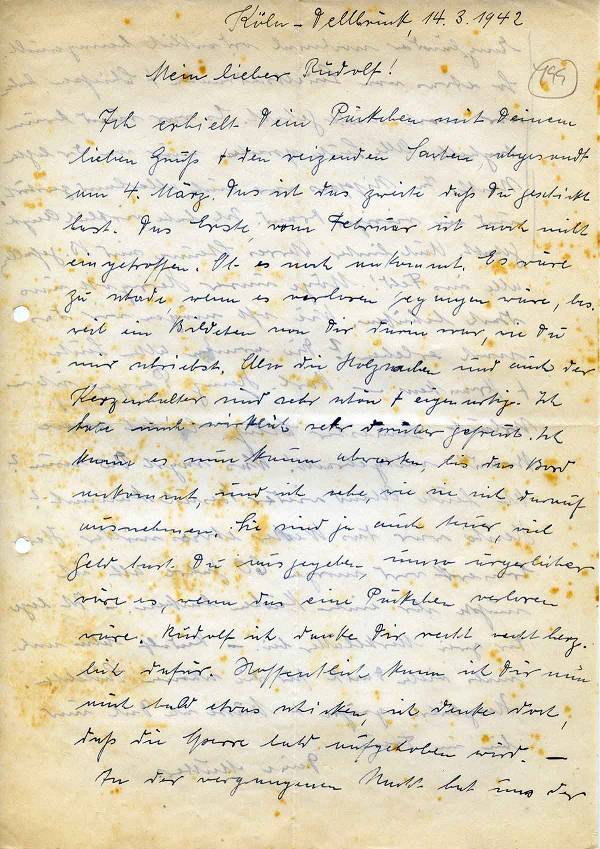 Köln-Dellbrück, 14.3.1942
199
Mein lieber Rudolf!
Ich erhielt Dein Päckchen mit Deinem
lieben Gruß + den reizenden Sachen, abgesandt
am 4. März. Das ist das zweite daß Du geschickt
hast. Das Erste, vom Februar ist noch nicht
eingetroffen. Ob es noch ankommt. Es wäre
zu schade wenn es verloren gegangen wäre,
weil ein Bildchen von Dir darin war, wie Du
mir schriebst. Also die Holzsachen und auch der
Kerzenhalter sind sehr schön + eigenartig. Ich
habe mich wirklich sehr darüber gefreut. Ich
kann es nun kaum abwarten bis das Bord
ankommt, und ich sehe, wie sie sich darauf
ausnehmen. Sie sind ja auch teuer, viel
Geld hast Du ausgegeben umso ärgerlicher
wäre es, wenn das eine Päckchen verloren
wäre. Rudolf ich danke Dir recht recht herz-
lich dafür. Hoffentlich kann ich Dir nun
auch bald etwas schicken, ich denke doch,
daß die Sperre bald aufgehoben wird. —
In der vergangenen Nacht hat uns der